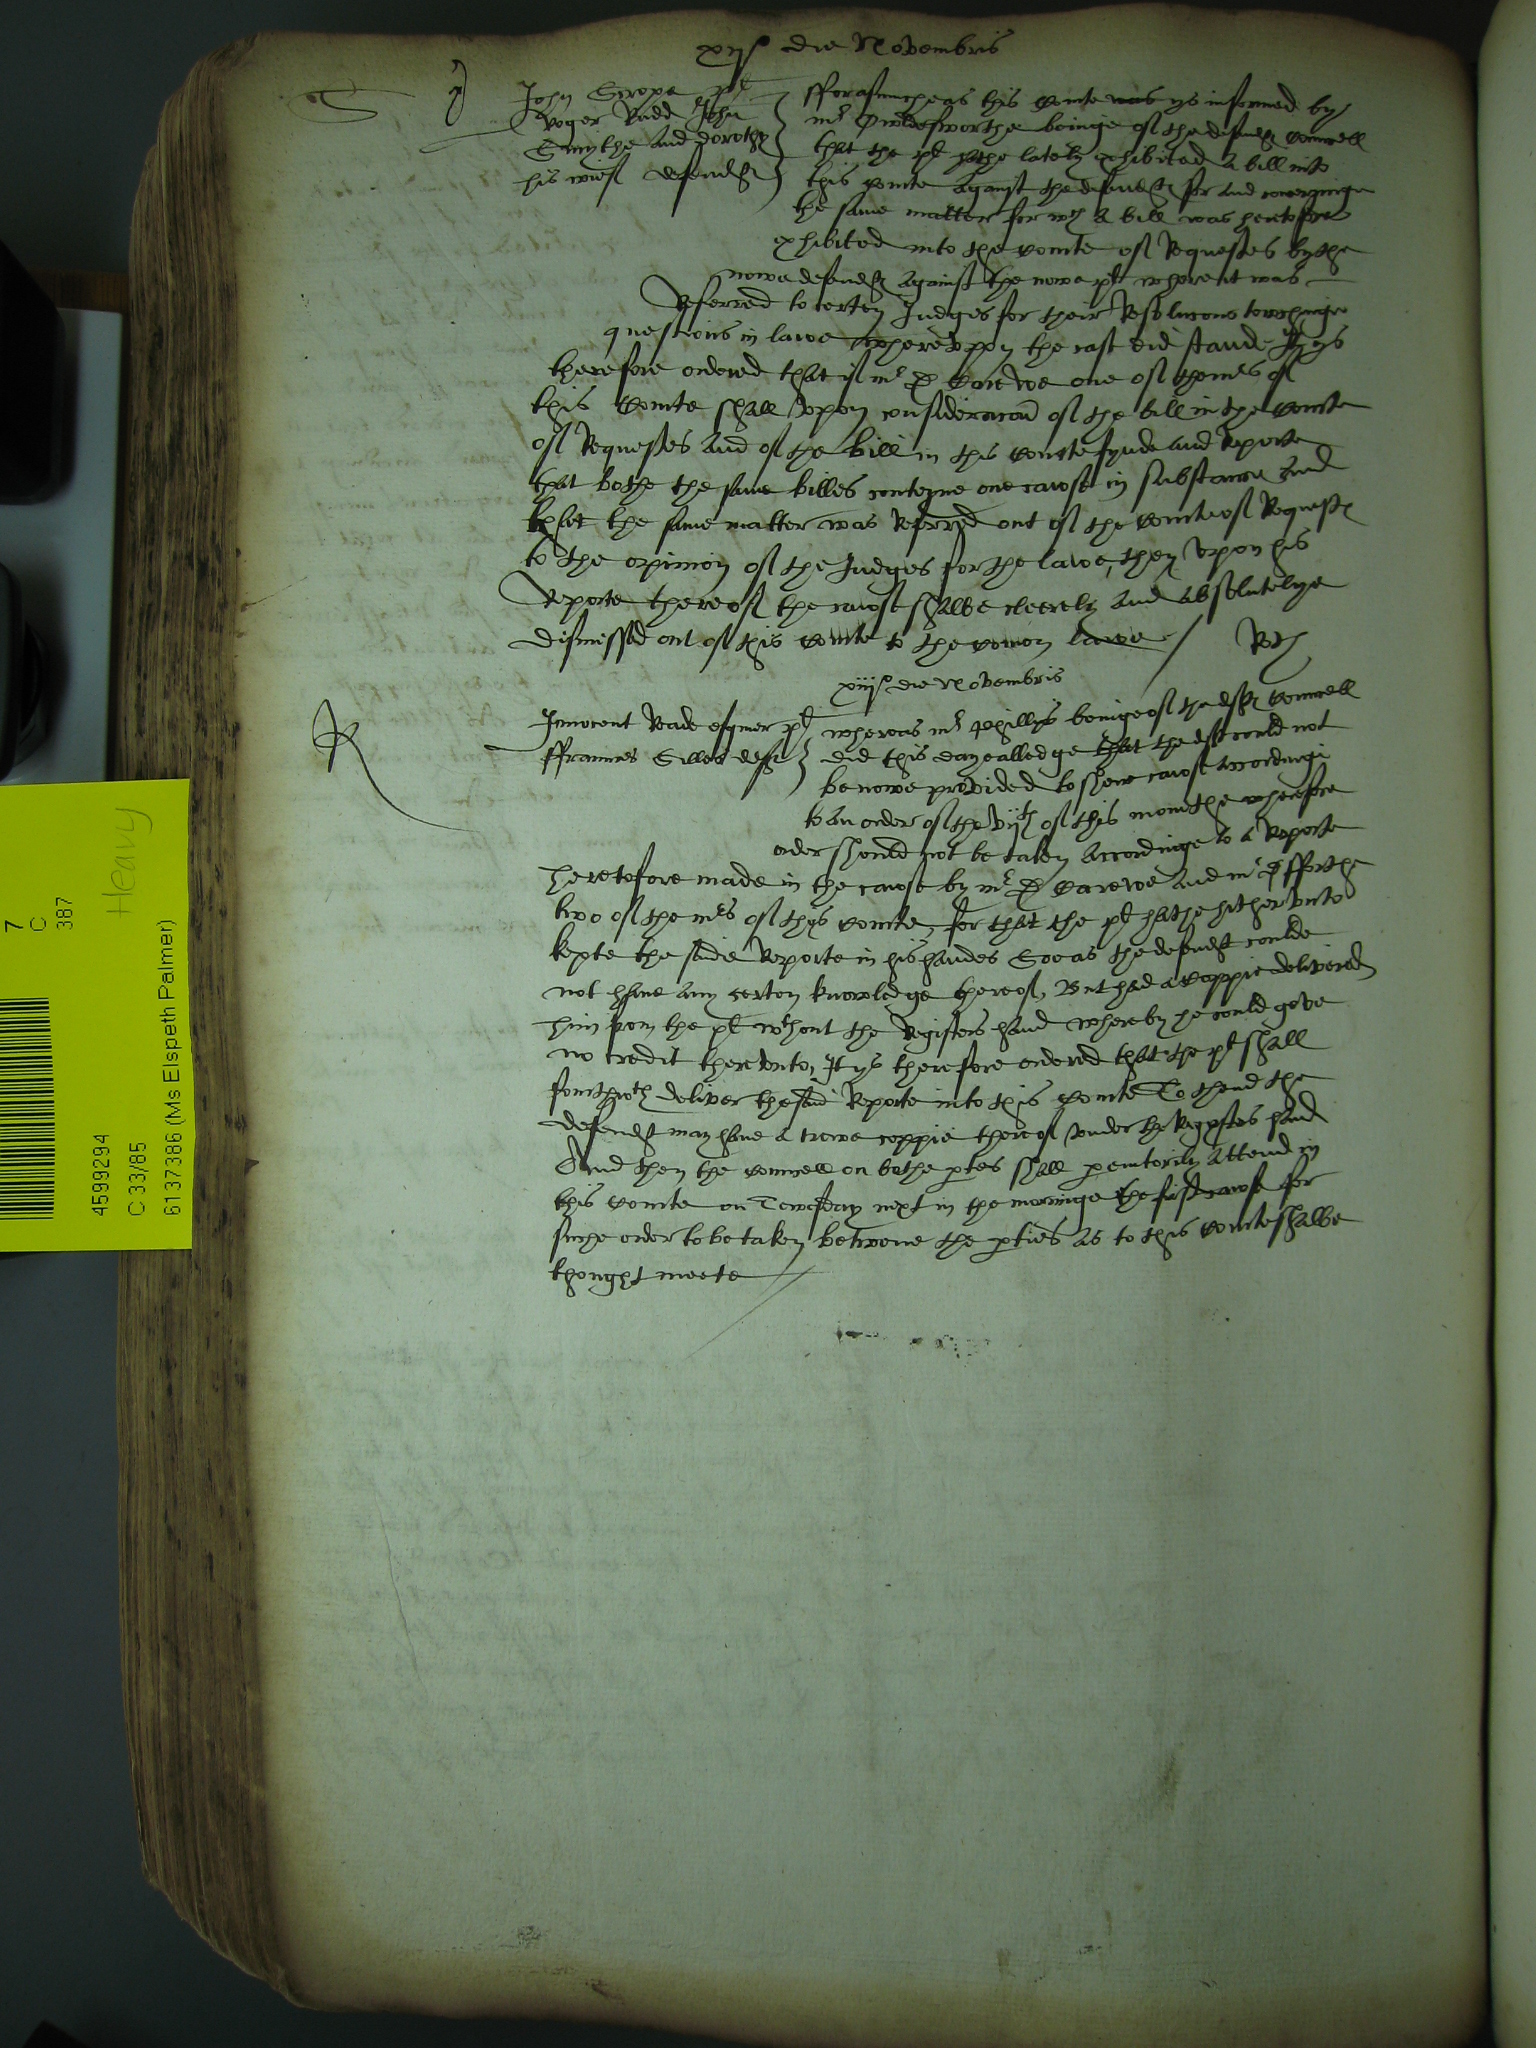 xij° die Novembris
S
John Scrope pl
Roger Radd John
Smythe and Dorothy
his wief defendtes
fforasmuche as this Courte was ys informed by
mr beinge of the defendtes Councell
that the pl hathe lately exhibited a bill into
this Courte against the defendtes for and concerninge
the same matter for wch a bill was heretofore
exhibited into the Courte of Requestes by the
nowe defendtes against the nowe pl where it was
Referred to certen Judges for their Resolucons touchinge
questions in lawe whereuppon the case did stande It ys
therefore ordered that if mr D Carewe one of the mrs of
this Courte shall upon consideracon of the bill in the Courte
of Requestes and of the bill in this Courte fynde and Reporte
that bothe the same billes conteyne one cawse in substance and
that the same matter was Referred out of the Courte of Requestes
to the opinion of the Judges for the lawe, then upon his
Reporte thereof the cawse shalbe cleerely and absolutelye
dismissed out of this Courte to the Comon lawe / Rth
xiij° die Novembris
R
Innocent Reade esquier pl
ffraunces Gilles deft
whereas mr Phillips beinge of the deftes Councell
did this daye alledge that the deft could not
be nowe provided to shew cawse accordinge
to an order of the vijth of this monethe wherefore
order should not be taken accordinge to a Reporte
heretofore made in the cawse by mr D Carewe and mr D fforthe
two of the mrs of thys Courte, for that the pl hathe hitherunto
kepte the saide Reporte in his handes Soe as the defendt coulde
not have any certen knowledge thereof, But had a Coppie delivered
him from the pl wthout the Registers hand whereby he could geve
no credit thereunto, It ys therefore ordered that the pl shall
fourthwth deliver the said Reporte into this Courte To thend the
defendt may have a trewe coppie thereof under the Regesters hand
And then the Councell on bothe ptes shall peremtorily attend in
this Courte on Tewsday next in the morninge the first cawse for
suche order to be taken betweene the pties as to this Courte shalbe
thought meete /
7
C
387
Heavy
4599294
C 33/85
6137386 (Ms Elspeth Palmer)